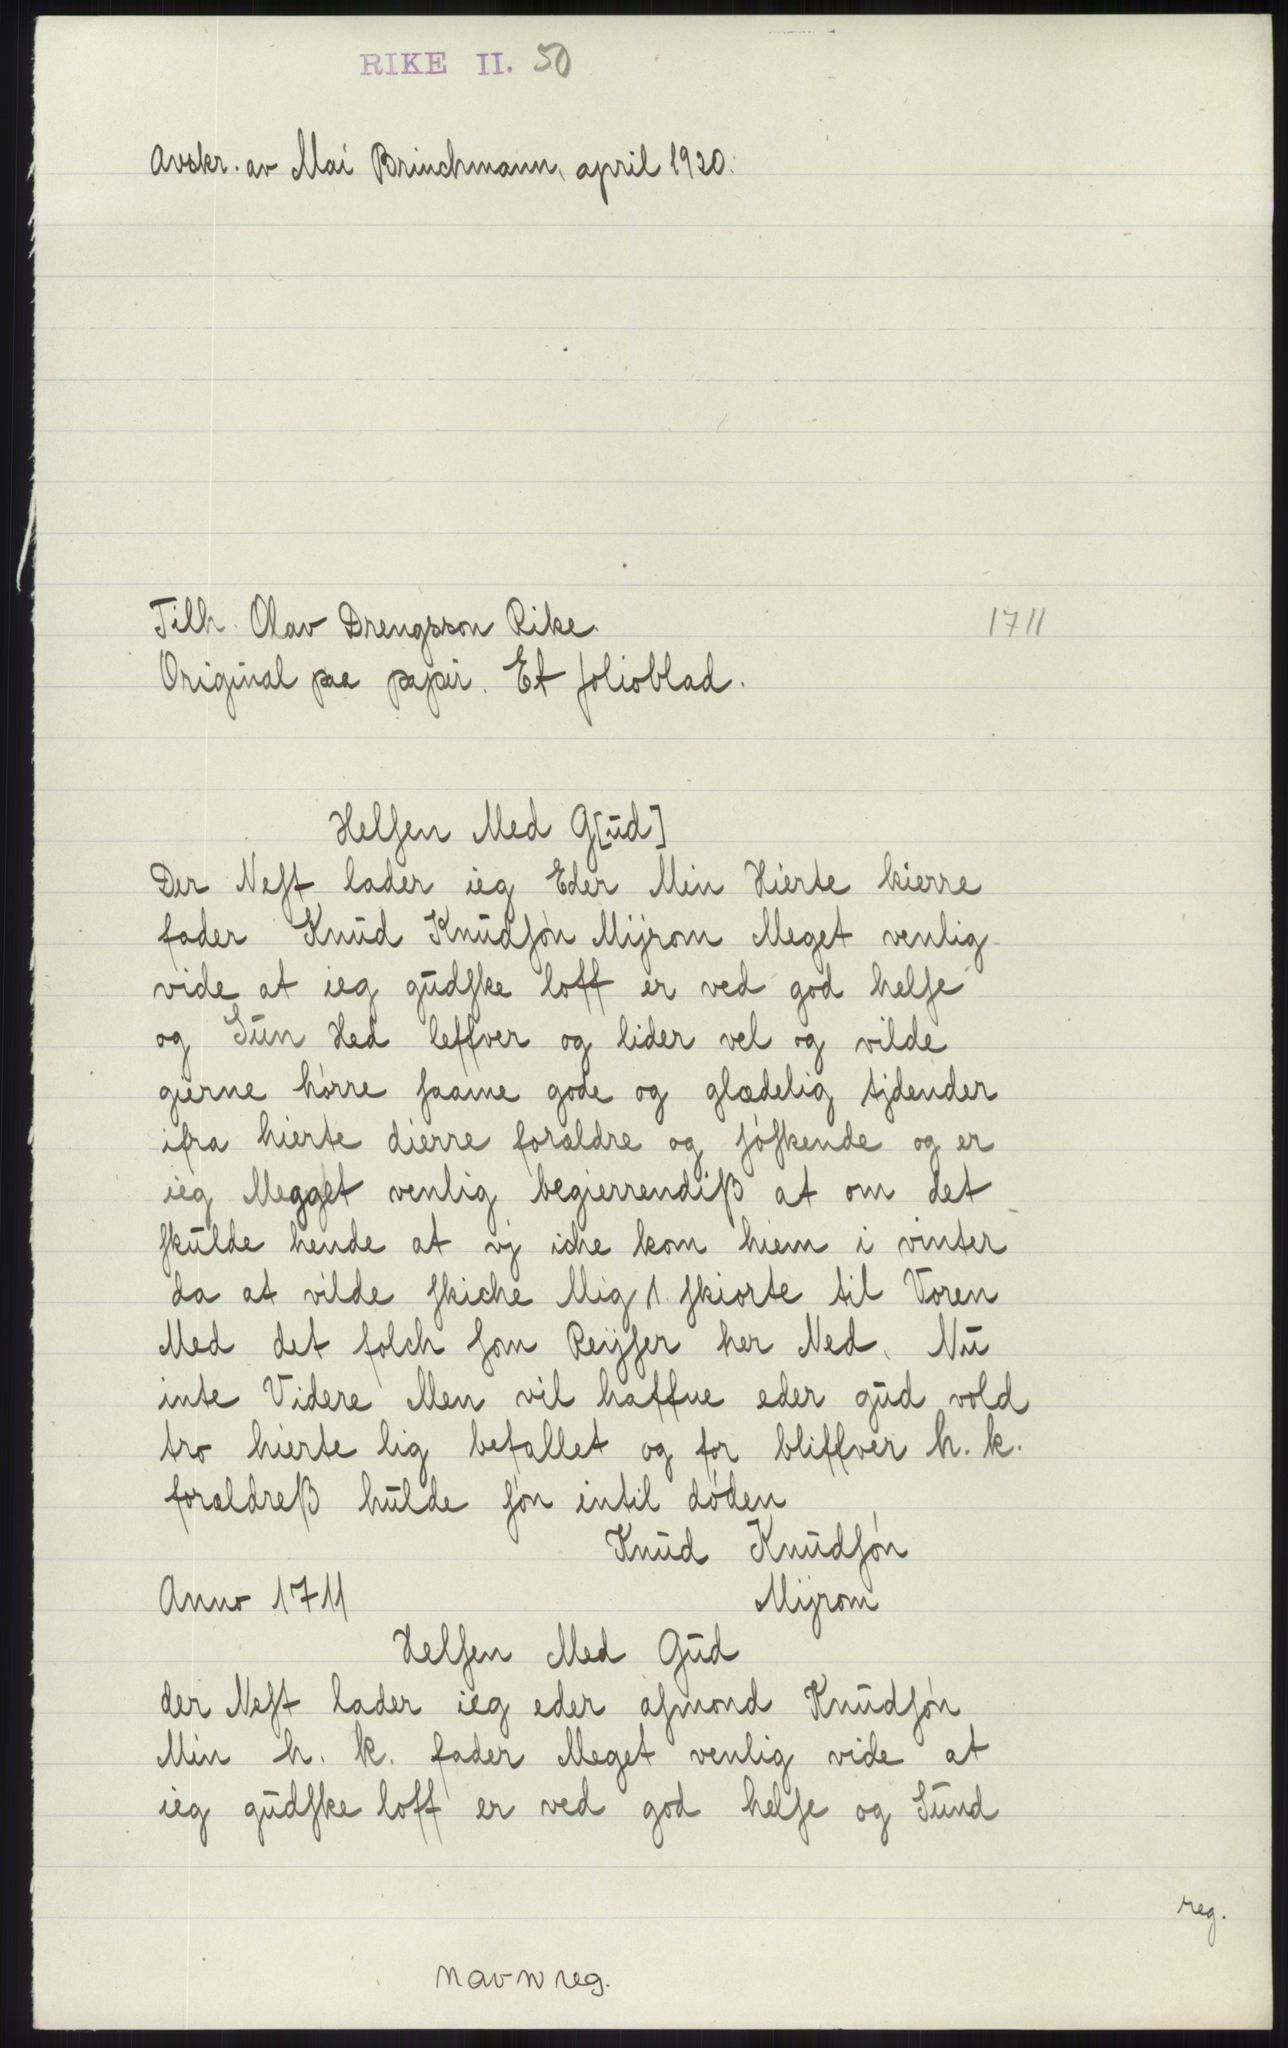 RIKE II. 50
Avskr. av Mai Brinchmann, april 1920.
Tilh. Olav Drengsson Rike.
1711
Original paa papir. Et folioblad.
Helſen Med G[ud]
Der Neſt lader ieg Eder Min Hierte kierre
fader Knud Knudſøn Mijrom Meget venlig
vide at ieg gudſke loff er ved god helſe
og Sun Hed leffver og lider vel og vilde
gierne hørre ſaame gode og glædelig tjdender
ifra hierte dierre forældre og ſøſkende og er
ieg Megget venlig begierrendiß at om det
ſkulde hende at vj iche kom hiem i vinter
da at vilde ſkiche Mig 1 ſkiorte til Voren
Med det folch ſom Reijſer her Ned. Nu
inte Videre Men vil haffue eder gud vold
tro hierte lig befallet og for bliffver h. k.
forældreß hulde ſøn intil døden
Knud Knudſøn
Anno 1711 Mijrom
Helſen Med Gud
der Neſt lader ieg eder aſmond Knudſøn
Min h. k. fader Meget venlig vide at
ieg gudſke loff er ved god helſe og Sund
reg.
navnreg.